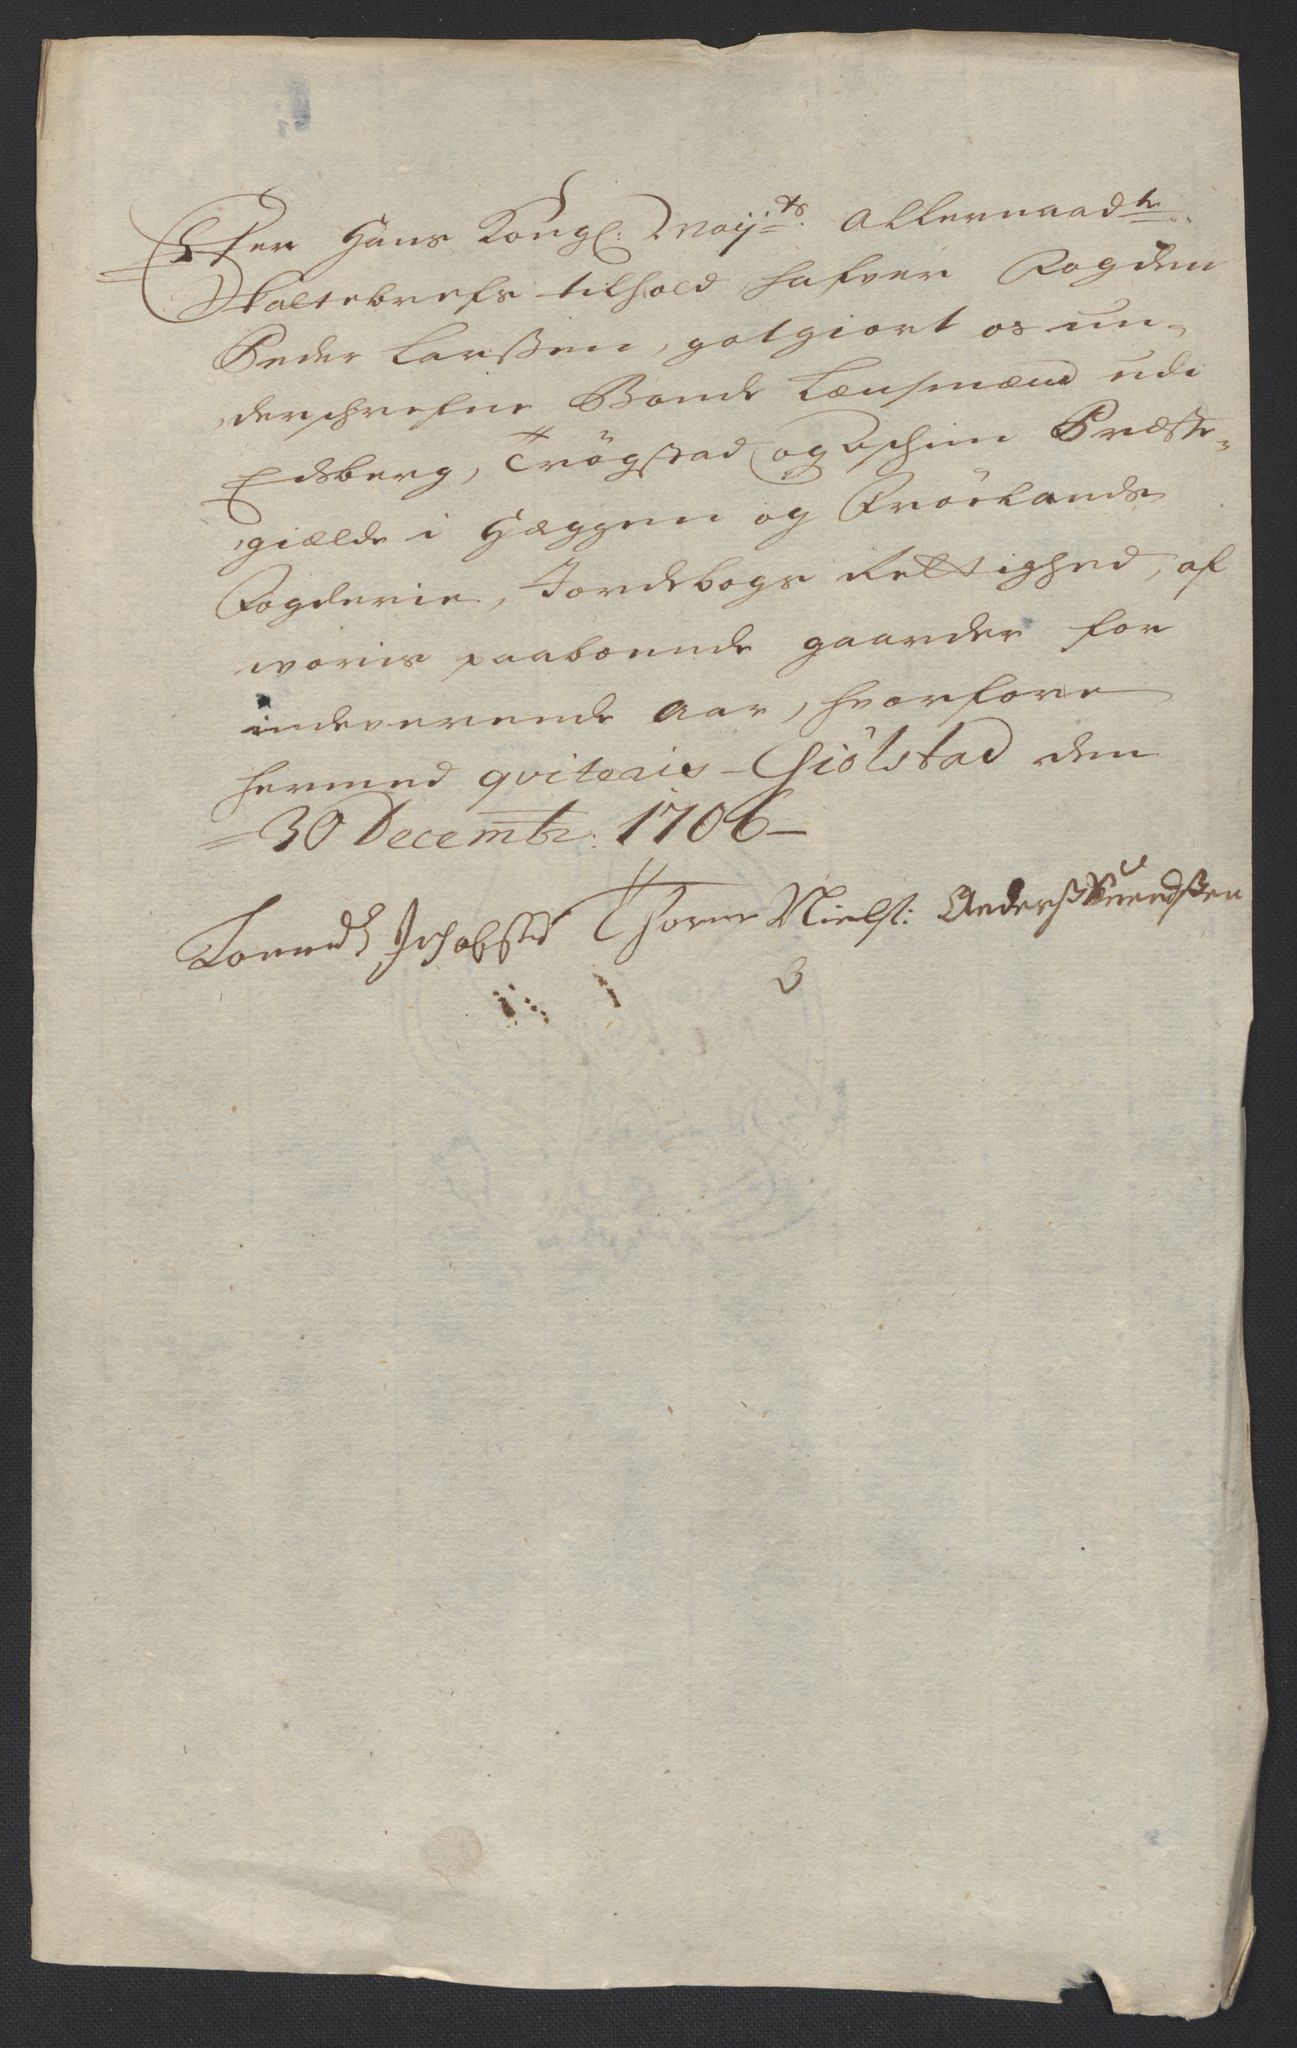 Efter Hans Kongl: Mayj:ts Allernaadh:
Skattebrefs tilhold hafver Fogden
Peder Larßen, gotgiort os un-
derschrefne Bonde Lænsmænd udi
Edsberg, Trögstad og Aschim Præste-
gielde i Heggen og Frölands
Fogderie, Jordebogs Rettighed, af
woris paaboende gaarder for
indeverende Aar, hvorfore
hermed qviteris - Giölstad den
30 Decembr: 1706 -
Jochobsen Thorer Nielß: Anderß Suendßen